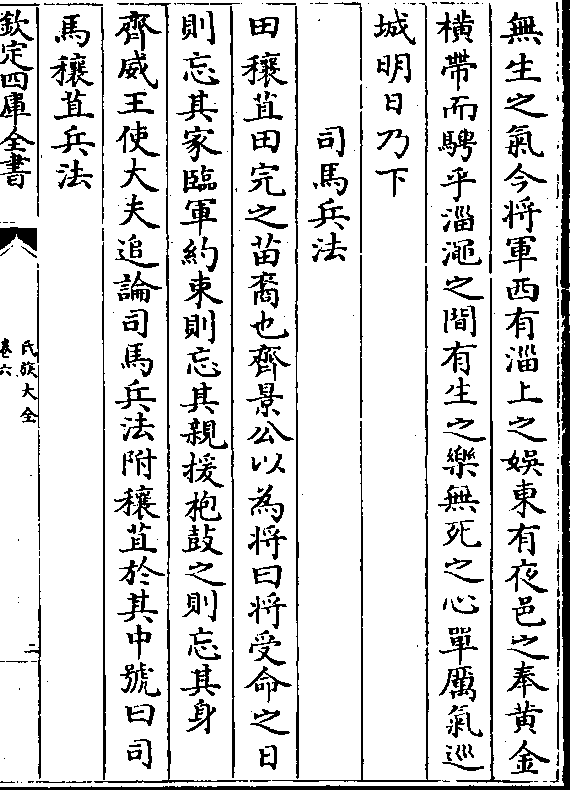 無生之氣今將軍西有淄上之娱東有夜邑之奉黄金
橫帶而騁乎淄澠之間有生之樂無死之心單厲氣巡
城明日乃下
司馬兵法
田穰苴田完之苗裔也齊景公以為將曰將受命之日
則忘其家臨軍約束則忘其親援枹鼓之則忘其身
齊威王使大夫追論司馬兵法附穰苴於其中號曰司
馬穰苴兵法
欽定四庫全書
氏族大全
卷六
二